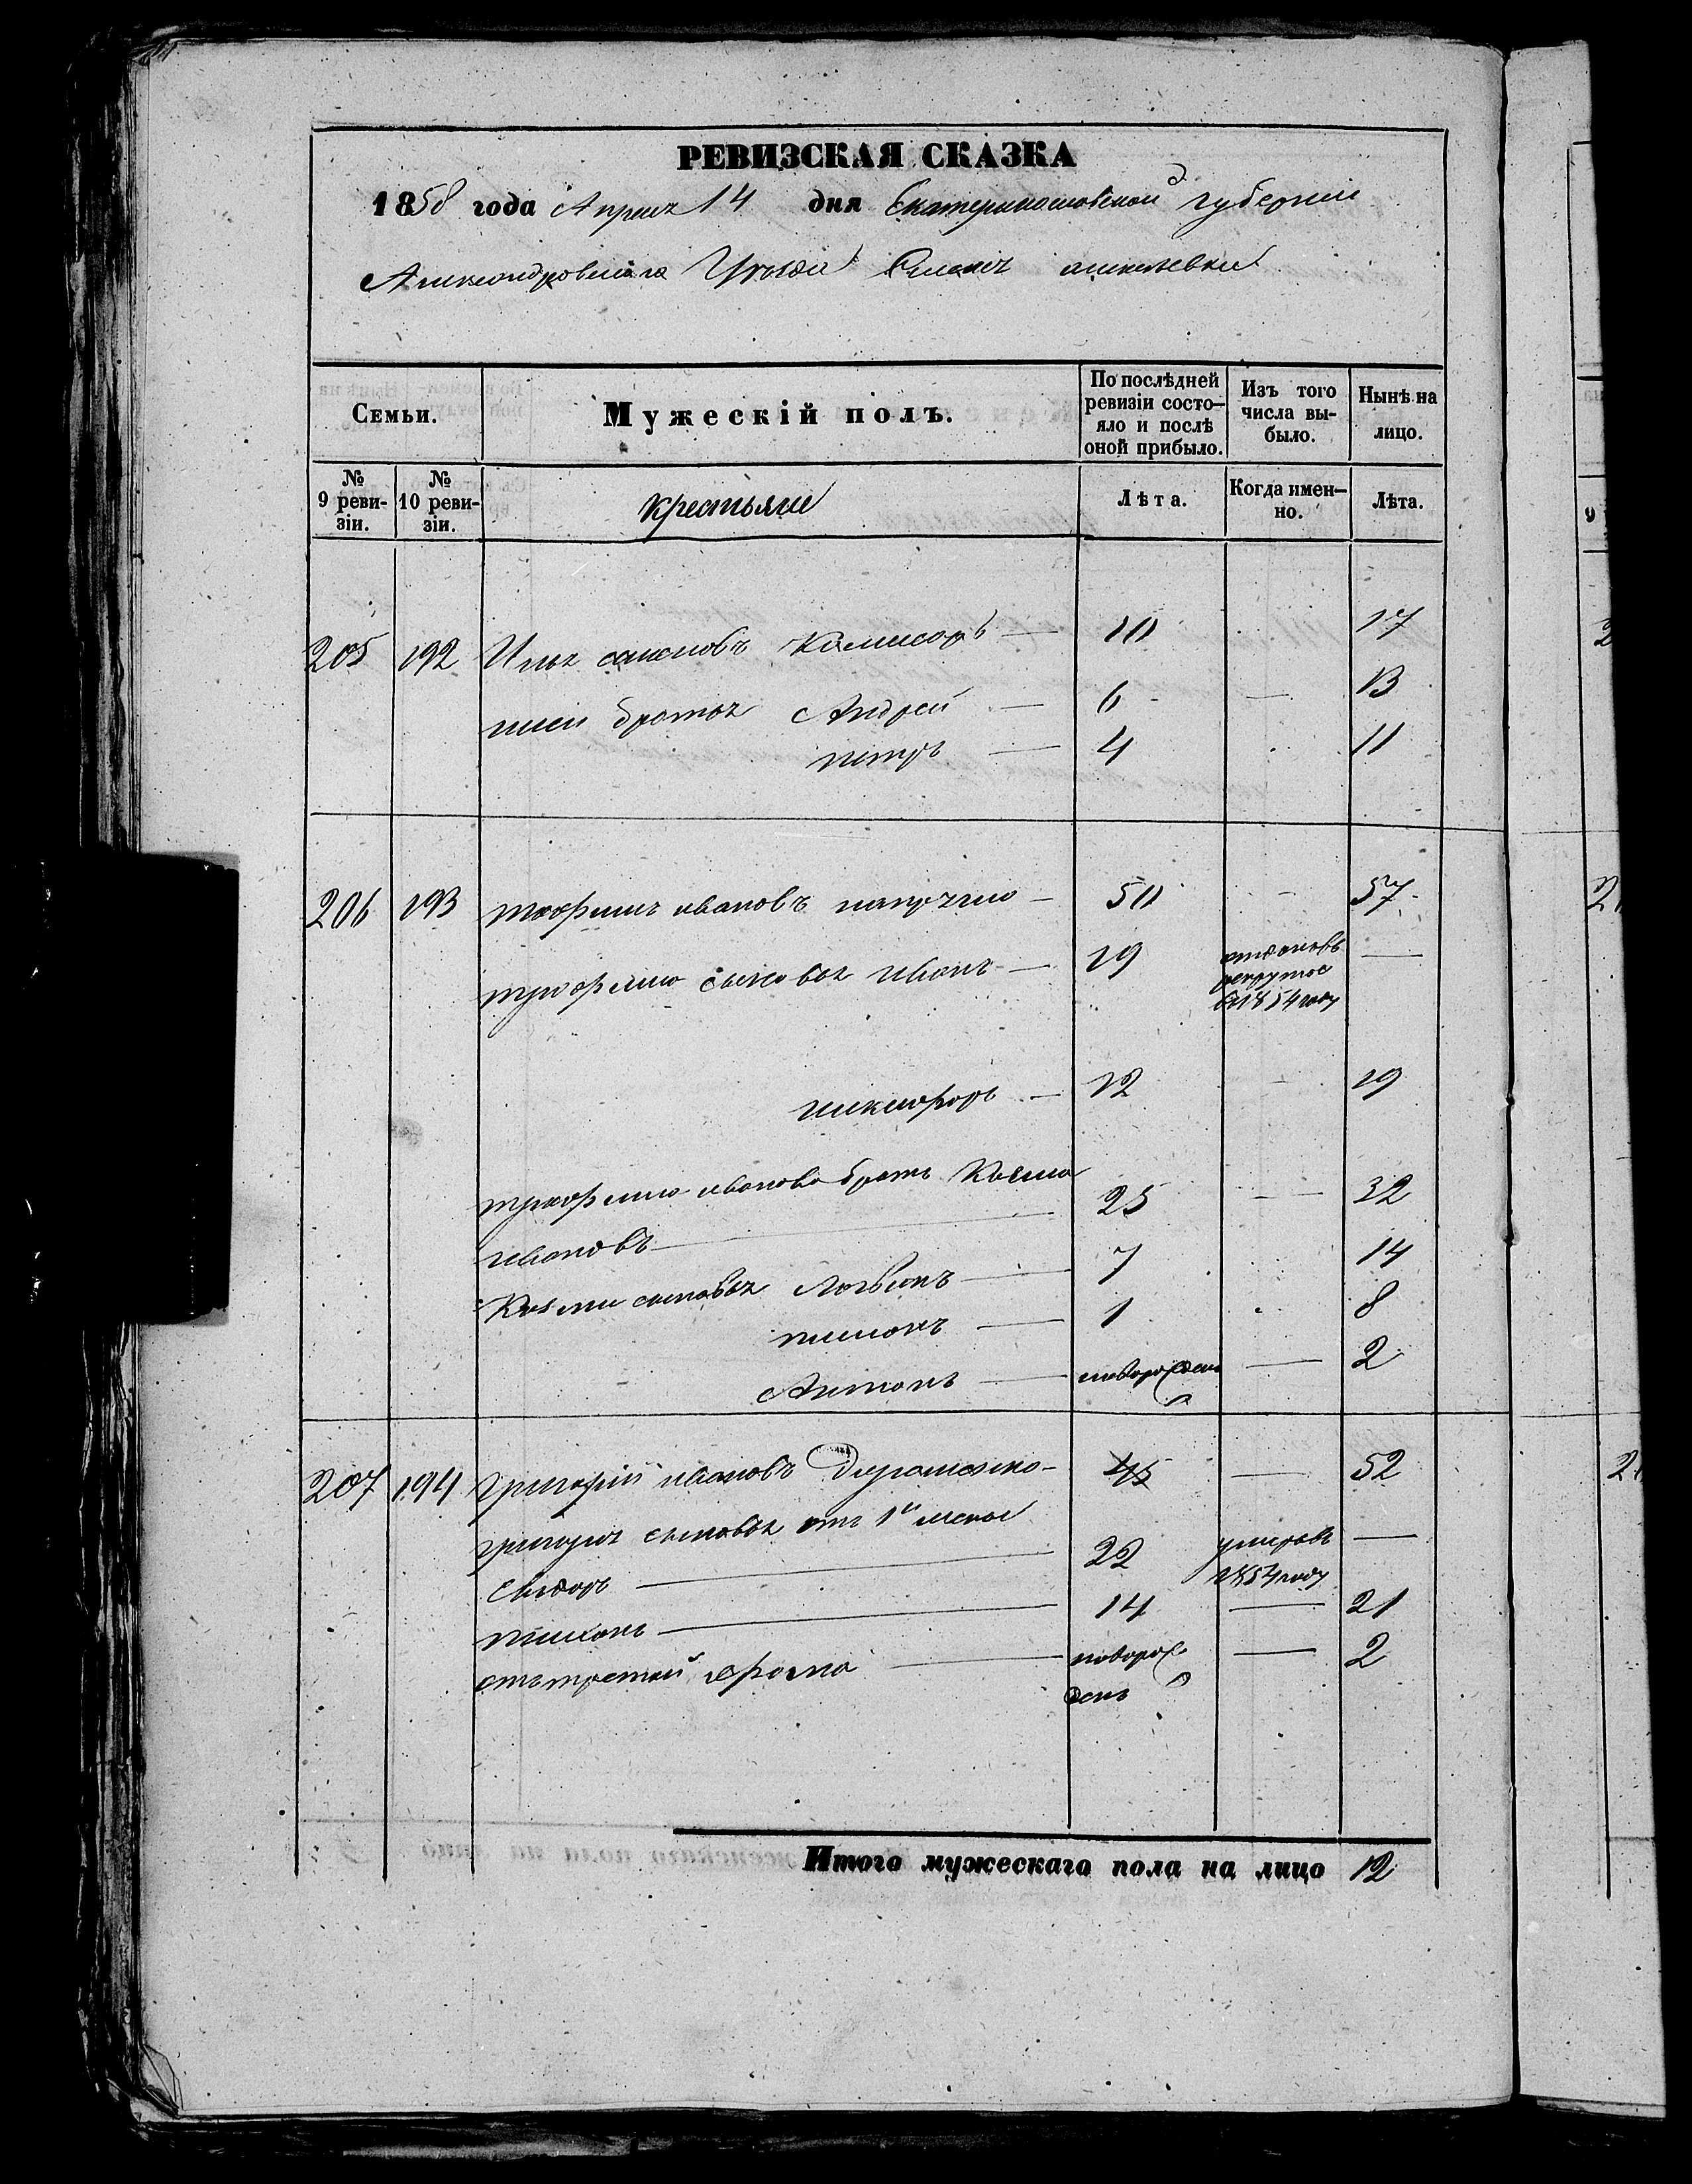 РЕВИЗСКАЯ СКАЗКА
1858 года Апреля 14 дня Екатеринославской губернии
Александровского Уезда
Семьи. Мужескій полъ. По послѣдней ревизіи состо- яло и послѣ оной прибыло. Изъ того числа вы- было. Нынѣ на лицо.
№ 9 реви- зіи. № 10 реви- зіи. крестьяне Лѣта. Когда имен- но. Лѣта.
205 192 Илья 10 17
братья Андрей 6 13
петръ 4 11
206 193 ивановъ 50 57
сыновья иванъ 19 рекруты 1854 году
никифоръ 12 19
иванова братъ Козма
ивановъ 25 32
Козми сыновья логвинъ 7 14
1 8
Антонъ новорожден 2
207 194 григорій ивановъ 45 52
григория сыновья отъ 1й жены
22 умеръ 1854 году
тихонъ 14 21
отъ третьей новорож денъ 2
Итого мужескаго пола на лицо 12